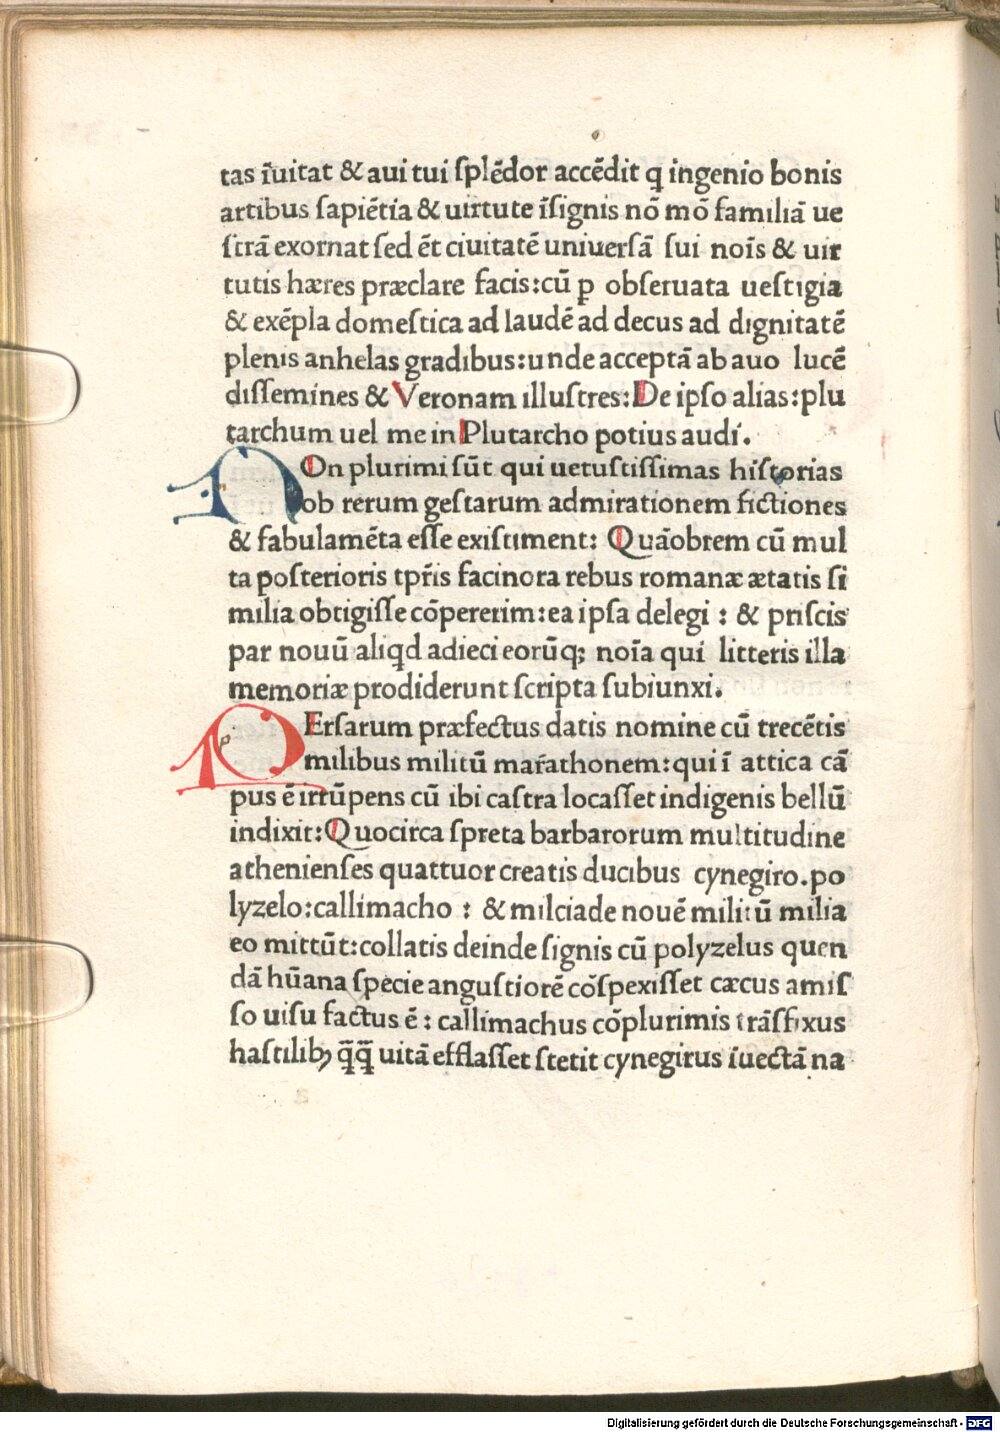 tas ĩuitat & aui tui ſplẽdor accẽdit q̃ ingenio bonis
artibus ſapiẽtia & uirtute ĩſignis nõ mõ familiã ue
ſtrã exornat ſed ẽt ciuitatẽ uniuerſã ſui noĩs & uir
tutis hæres præclare facis:cũ ꝑ obſeruata ueſtigia
& exẽpla domeſtica ad laudẽ ad decus ad dignitatẽ
plenis anhelas gradibus:unde acceptã ab auo lucẽ
diſſemines & Veronam illuſtres:De ipſo alias:plu
tarchum uel me in Plutarcho potius audi.
NOn plurimi ſũt qui uetuſtiſſimas hiſtorias
ob rerum geſtarum admirationem fictiones
& fabulamẽta eſſe exiſtiment: Quãobrem cũ mul
ta poſterioris tpr̃is facinora rebus romanæ ætatis ſi
milia obtigiſſe cõpererim:ea ipſa delegi : & priſcis
par nouũ aliqd adieci eorũq; noĩa qui litteris illa
memoriæ prodiderunt ſcripta ſubiunxi.
PErſarum præfectus datis nomine cũ trecẽtis
milibus militũ mar̃athonem:qui ĩ attica cã
pus ẽ irrũpens cũ ibi caſtra locaſſet indigenis bellũ
indixit:Quocirca ſpreta barbarorum multitudine
athenienſes quattuor creatis ducibus cynegiro.po
lyzelo:callimacho : & milciade nouẽ militũ milia
eo mittũt:collatis deinde ſignis cũ polyzelus quen
dã hũana ſpecie anguſtiorẽ cõſpexiſſet cæcus amiſ
ſo uiſu factus ẽ : callimachus cõplurimis trãſfixus
haſtilibꝫ q̃q̃ uitã efflaſſet ſtetit cynegirus ĩuectã na
Digitalisierung gefördert durch die Deutsche Forschungsgemeinschaft - DFG